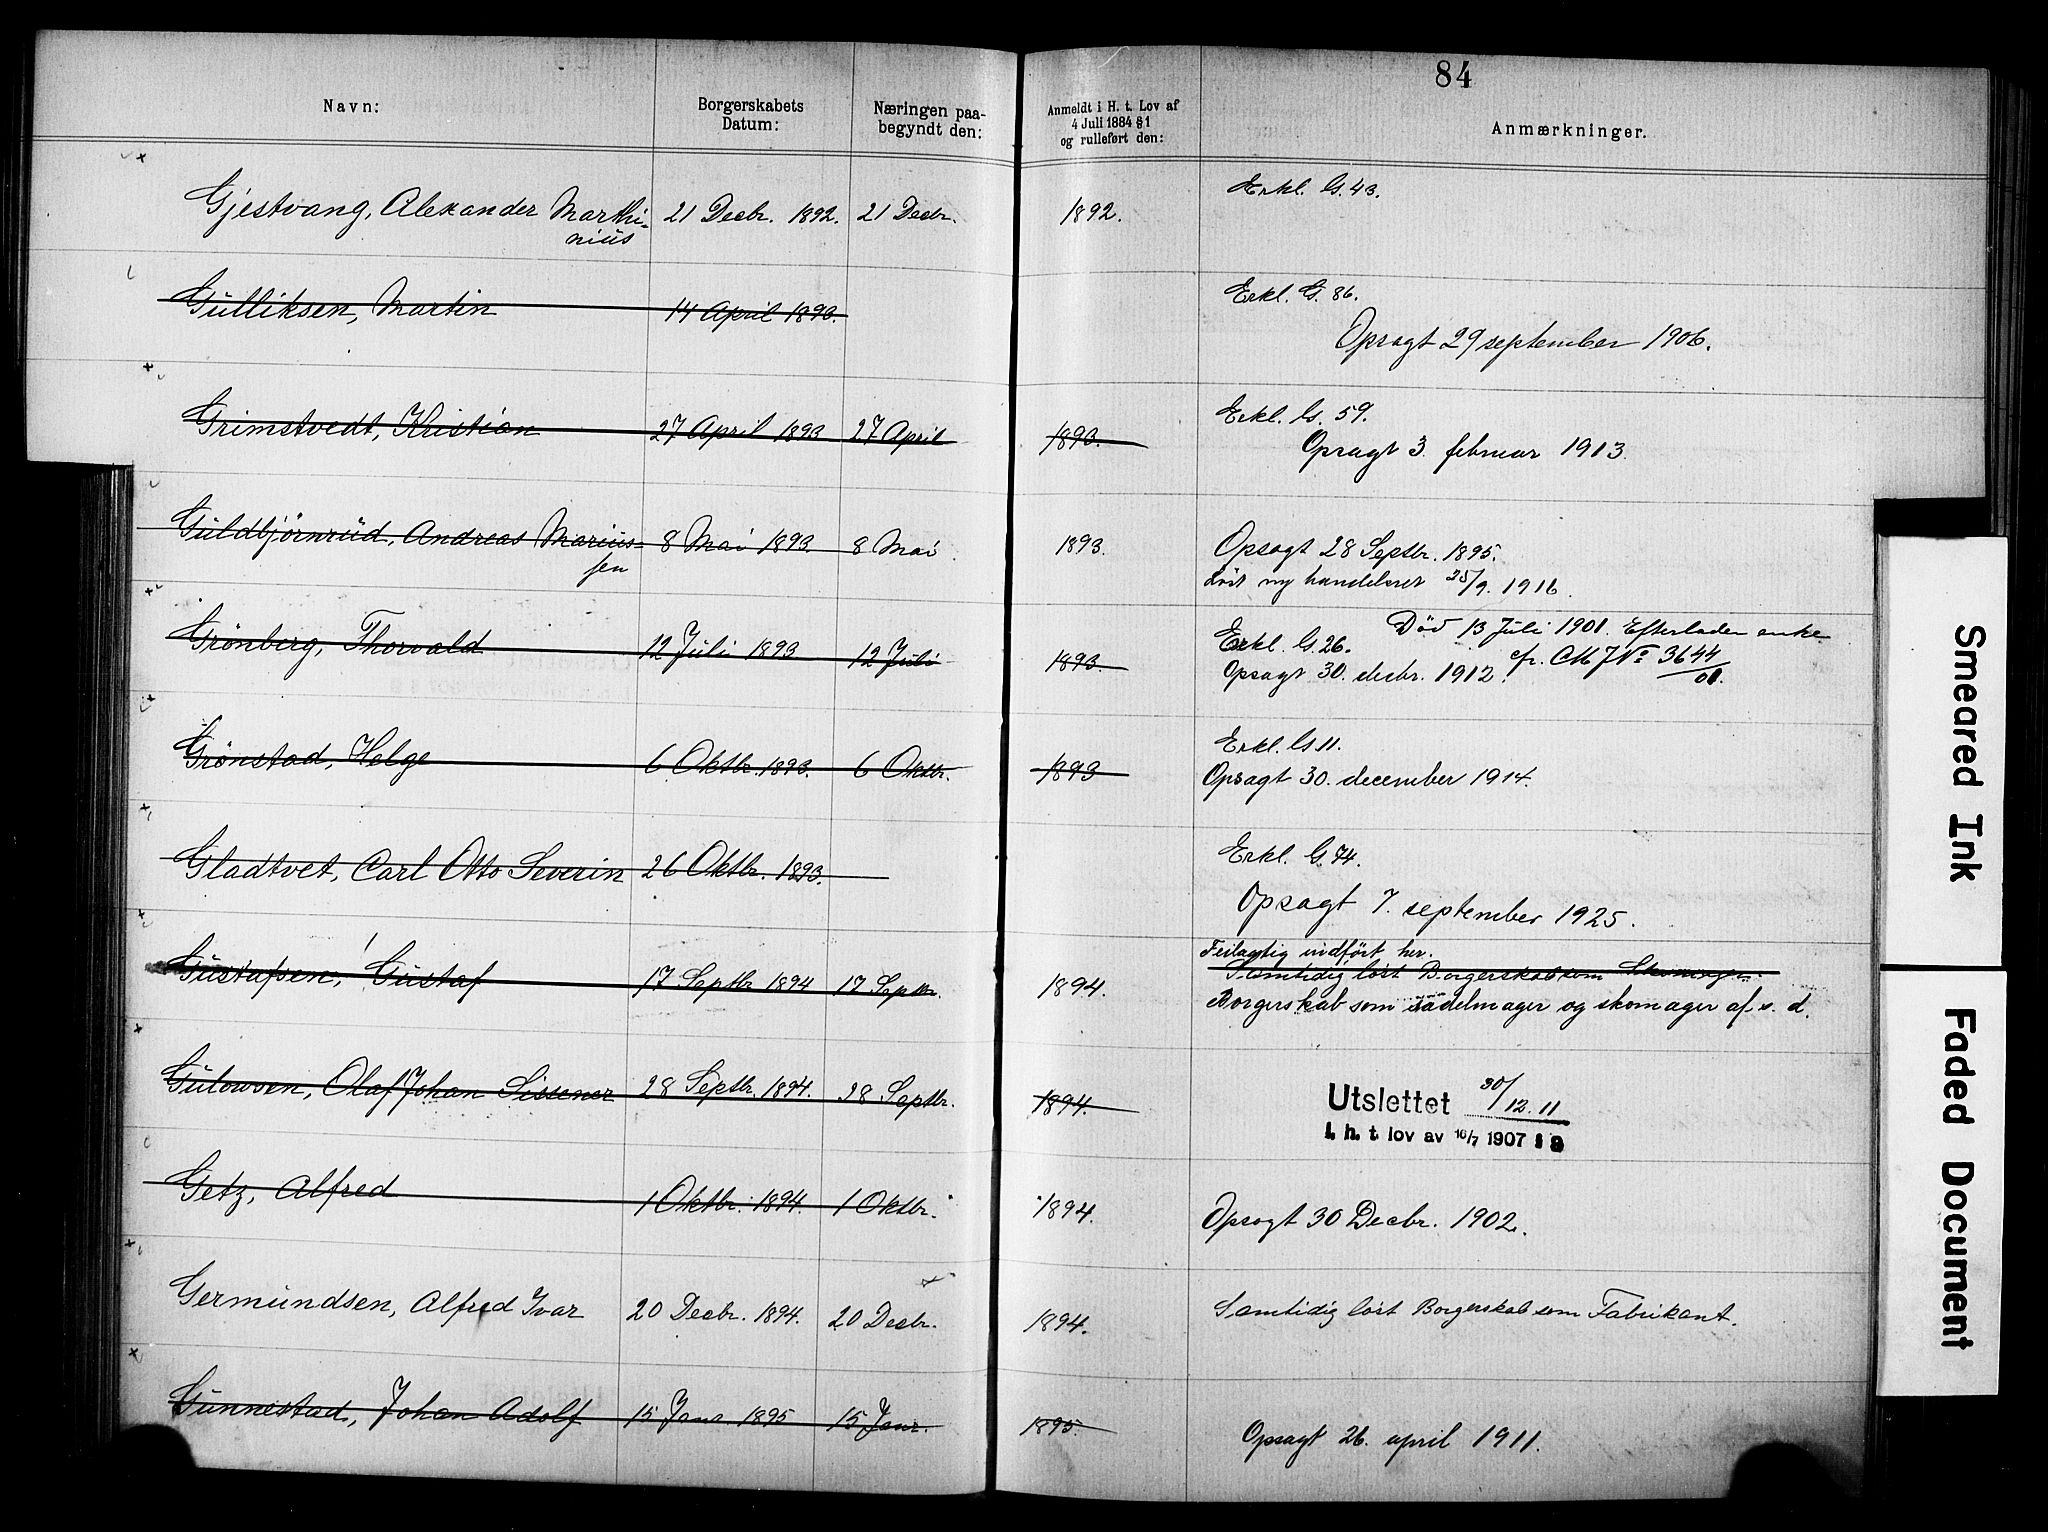 84
Navn: Borgerskabets Datum: Næringen paa-begyndt den: Anmeldt i H. t. Lov af 4 Juli 1884 § 1 og rulleført den: Anmærkninger.
Erkl. G. 43.
Gjestvang, Alexander Marthi- 21 Decbr. 1892. 21 Decbr. 1892.
nius
Erkl. G. 86.
Gulliksen, Martin 14 April 1893.
Opsagt 29 september 1906.
Erkl. G. 59.
Grimstvedt, Kristian 27 April 1893 27 April 1893.
Opsagt 3. februar 1913.
Guldbjørnrud, Andreas Marius- 8 Mai 1893 8 Mai. 1893. Opsagt 28 Septbr. 1895.
sen løst ny handelsret 25/9. 1916.
Død 13 Juli 1901. Efterlader enke
Grönberg, Thorvald 12 Juli 1893 12 Juli 1893. Erkl. G. 26. cfr. CMJ No 3644/01.
Opsagt 30. decbr. 1912.
Erkl. G 11.
Grönstad, Helge 6 Oktbr. 1893. 6 Oktbr. 1893
Opsagt 30. december 1914.
Erkl. G. 74.
Gladtvet, Carl Otto Severin 26 Oktbr. 1893.
Opsagt 7. september 1925.
Feilagtig indført her.
Gustafsen, Gustaf 17 Septbr 1894 17 Septbr. 1894. Samtidig løst Borgerskab som
Borgerskab som sadelmager og skomager af s. d.
Gulowsen, Olaf Johan Sissener 28 Septbr. 1894. 28 Septbr. 1894. Utslettet 30/12.11
I. h. t. lov av 16/7 1907 §
Getz, Alfred 1 Oktbr. 1894. 1 Oktbr. 1894. Opsagt 30 Decbr. 1902.
Germundsen, Alfred Ivar 20 Decbr. 1894. 20 Decbr. 1894. Samtidig løst Borgerskab som Fabrikant.
Gunnestad, Johan Adolf 15 Janr. 1895 15 Janr. 1895.
Opsagt 26. april 1911.
Smeared Ink
Faded Document